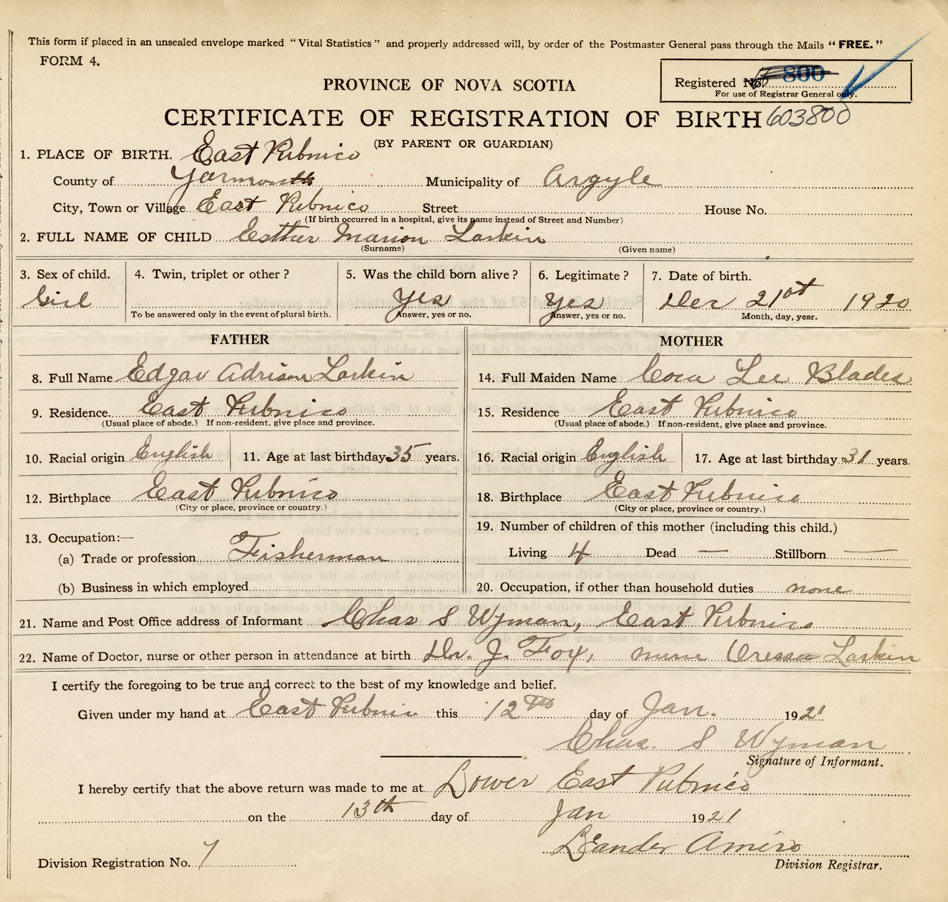 This form if placed in an unsealed envelope marked "Vital Statistics" and properly addressed will, by order of the Postmaster General pass through the Mails "FREE."
FORM 4.
PROVINCE OF NOVA SCOTIA
Registered No. 800
For use of Registrar General only.
CERTIFICATE OF REGISTRATION OF BIRTH 603800
(BY PARENT OR GUARDIAN)
1. PLACE OF BIRTH. East Pubnico
County of Yarmouth Municipality of Argyle
City, Town or Village East Pubnico Street House No.
(If birth occurred in a hospital, give its name instead of Street and Number)
2. FULL NAME OF CHILD Esther Marion Larkin
(Surname) (Given name)
3. Sex of child. 4. Twin, triplet or other? 5. Was the child born alive? 6. Legitimate? 7. Date of birth.
Girl Yes Yes Dec 21st 1920
To be answered only in the event of plural birth. Answer, yes or no. Answer, yes or no. Month, day, year.
FATHER MOTHER
8. Full Name Edgar Larkin 14. Full Maiden Name Lee Blades
9. Residence. East Pubnico 15. Residence East Pubnico
(Usual place of abode.) If non-resident, give place and province. (Usual place of abode.) If non-resident, give place and province.
10. Racial origin English 11. Age at last birthday 35 years. 16. Racial origin English 17. Age at last birthday 31 years.
12. Birthplace East Pubnico 18. Birthplace East Pubnico
(City or place, province or country.) (City or place, province or country.)
13. Occupation:— 19. Number of children of this mother (including this child.)
(a) Trade or profession Fisherman Living 4 Dead — Stillborn —
(b) Business in which employed 20. Occupation, if other than household duties none
21. Name and Post Office address of Informant Chas S Wyman, East Pubnico
22. Name of Doctor, nurse or other person in attendance at birth Dr. J. Fox, nurse Larkin
I certify the foregoing to be true and correct to the best of my knowledge and belief.
Given under my hand at East Pubnico this 12th day of Jan. 1921
Chas. S Wyman
Signature of Informant.
I hereby certify that the above return was made to me at Lower East Pubnico
on the 13th day of Jan 1921
Leander Amiro
Division Registration No. 7 Division Registrar.